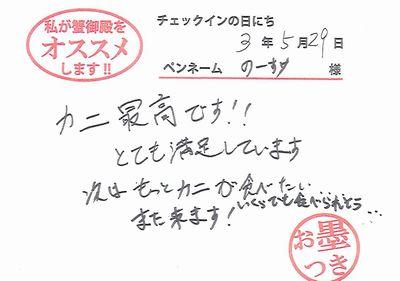 私が蟹御殿を
オススメ
します!!
チェックインの日にち
3年5月29日
ペンネーム のーすけ 様
カニ最高です!!
とても満足しています
次はもっとカニが食べたい…
いくらでも食べられそう…
また来ます!
お墨
つき